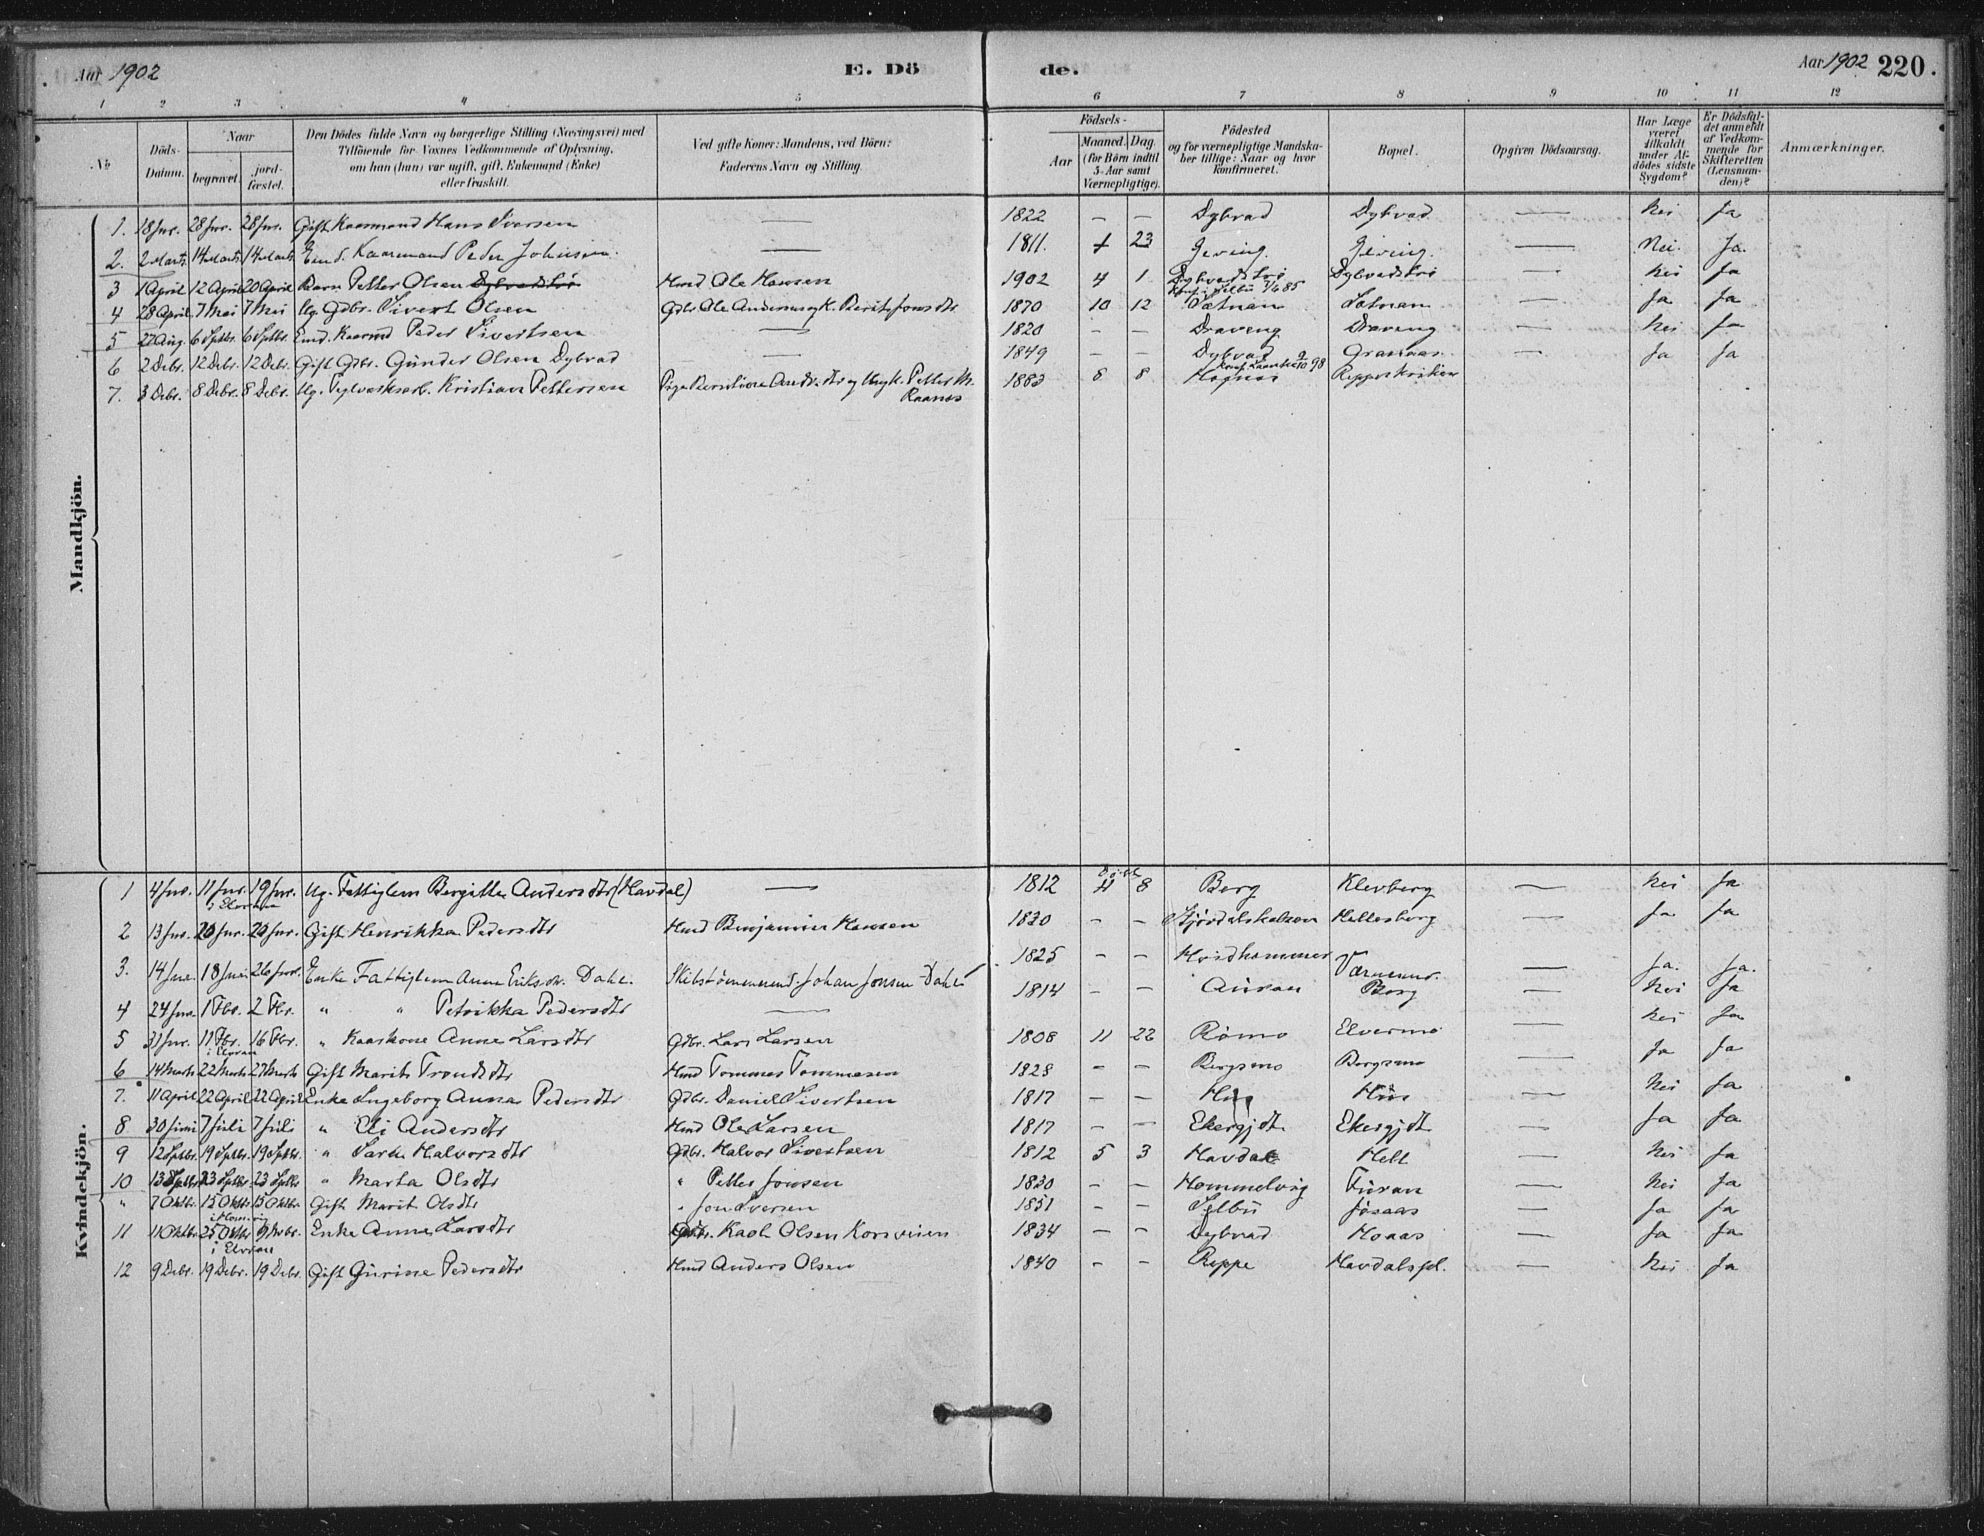 Aar 1902 E. Dö de. Aar 1902 220.
1 2 3 4 5 6 7 8 9 10 11 12
No
Döds-
Datum.
Naar
begravet.
jord-
fæstet.
Den Dödes fulde Navn og borgerlige Stilling (Næringsvei) med
Tilföiende for Voxnes Vedkommende af Oplysning,
om han (hun) var ugift, gift, Enkemand (Enke)
eller fraskilt.
Ved gifte Koner: Mandens, ved Börn:
Faderens Navn og Stilling.
Födsels-
Aar
Maaned. Dag.
(for Börn indtil
5 Aar samt
Værnepligtige).
Födested
og for værnepligtige Mandska-
ber tillige: Naar og hvor
konfirmeret.
Bopæl.
Opgiven Dödsaarsag.
Har Læge
været
tilkaldt
under Af-
dödes sidste
Sygdom?
Er Dödsfal-
det anmeldt
af Vedkom-
mende for
Skifteretten
(Lensman-
den)?
Anmærkninger.
Mandkjön.
1. 18 Jnr. 28 Jnr. 28 Jnr. Gift Kaarmand Hans Iversen — 1822 — — Dybvad Dybvad — Nei Ja
2. 2 Marts 14 Marts 14 Marts Emd. Kaarmand Peder Johnsen — 1811. 23 Geving. Geving. — Nei. Ja.
3 1 April 12 April 20 April Barn Petter Olsen Dybvadstrø Hmd Ole Hansen 1902 4 1 Dybvadstrø Dybvadstrø — Nei Ja
4 28 April 7 Mei 7 Mei Ug. Gdbr. Sivert Olsen Gdbr Ole Andersen og K. Berit Jonsdtr 1870 10 12 Sætnan Sætnan — Ja Ja
5 27 Aug. 6 Sptbr. 6 Sptbr. Emd. Kaarmd Peder Sivertsen — 1820 — — Draveng Draveng — Nei Ja
6 2 Debr. 12 Debr. 12 Debr. Gift Gdbr. Gunder Olsen Dybvad — 1849 — — Dybvad Granaas — Ja Ja
7. 3 Debr. 8 Debr. 8 Debr. Ug. Teglværksarb. Kristian Pettersen Petter M. 1883 8 8 Hognes
Raanes
Kvindekjön.
1 4 Jnr. 11 Jnr. 19 Jnr. Ug. Fattiglem Bergitte Andersdtr (Havdal) — 1812 11 8 Borg Klevberg — Nei Ja
i Elvran
2 13 Jnr. 20 Jnr. 20 Jnr. Gift Henrikka Pedersdtr Hmd Benjamin Hansen 1830 — — Stjørdalshalsen Hellesberg — Ja Ja
3. 14 Jnr. 18 Jnr. 26 Jnr. Enke Fattiglem Anne Eriksdr. Dahl. Skibstømmermd. Johan Jonsen Dahl 1825 — — Hvidhammer — Ja. Ja.
4 24 Jnr. 1 Fbr. 2 Fbr. " " Petrikka Pedersdtr — 1814 — — Auran Borg — Nei Ja
5 31 Jnr. 11 Fbr. 16 Fbr. " Kaarkone Anne Larsdtr Gdbr. Lars Larsen 1808 11 22 Rømo Elvermo — Nei Ja
i Elvran
6 14 Marts 22 Marts 27 Marts Gift Marit Trondsdtr Hmd Tommes Tommesen 1828 — — Bergsmo Bergsmo — Ja Ja
7. 11 April 22 April 22 April Enke Ingeborg Anna Pedersdtr Gdbr. Daniel Sivertsen 1817 — — Hus Hus — Nei Ja
8 30 Juni 7 Juli 7 Juli " Eli Andersdtr Hmd Ole Larsen 1817 — — — Ja Ja
9 12 Sptbr. 19 Sptbr. 19 Sptbr. " Sara Halvorsdtr Gdbr. Halvor Sivertsen 1812 5 3 Havdal Hell — Nei Ja
10 13 Sptbr. 23 Sptbr. 23 Sptbr " Marta Olsdtr " Petter Jonsen 1830 — — Hommelvig Furan — Nei Ja
" 7 Oktbr. 15 Oktbr 15 Oktbr Gift Marit Olsdtr " Jon Iversen 1851 — — Selbu Jøsaas — Ja Ja
11 11 Oktbr. 25 Oktbr 9 Nvbr. Enke Anne Larsdtr Gdbr. Karl Olsen Korsveien 1834 — — Dybvad Hoaas — Ja Ja
i Elvran
12 9 Debr. 19 Debr. 19 Debr. Gift Gurine Pedersdtr Hmd Anders Olsen 1840 — — Reppe Havdalspl. — Nei Ja